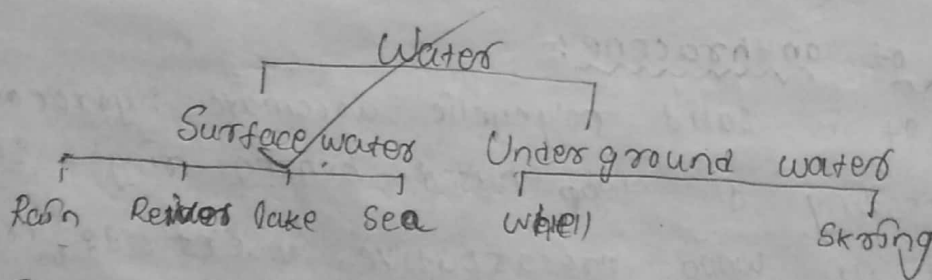 Water
Surface water Underground water
Rain lake Sea Well Skring